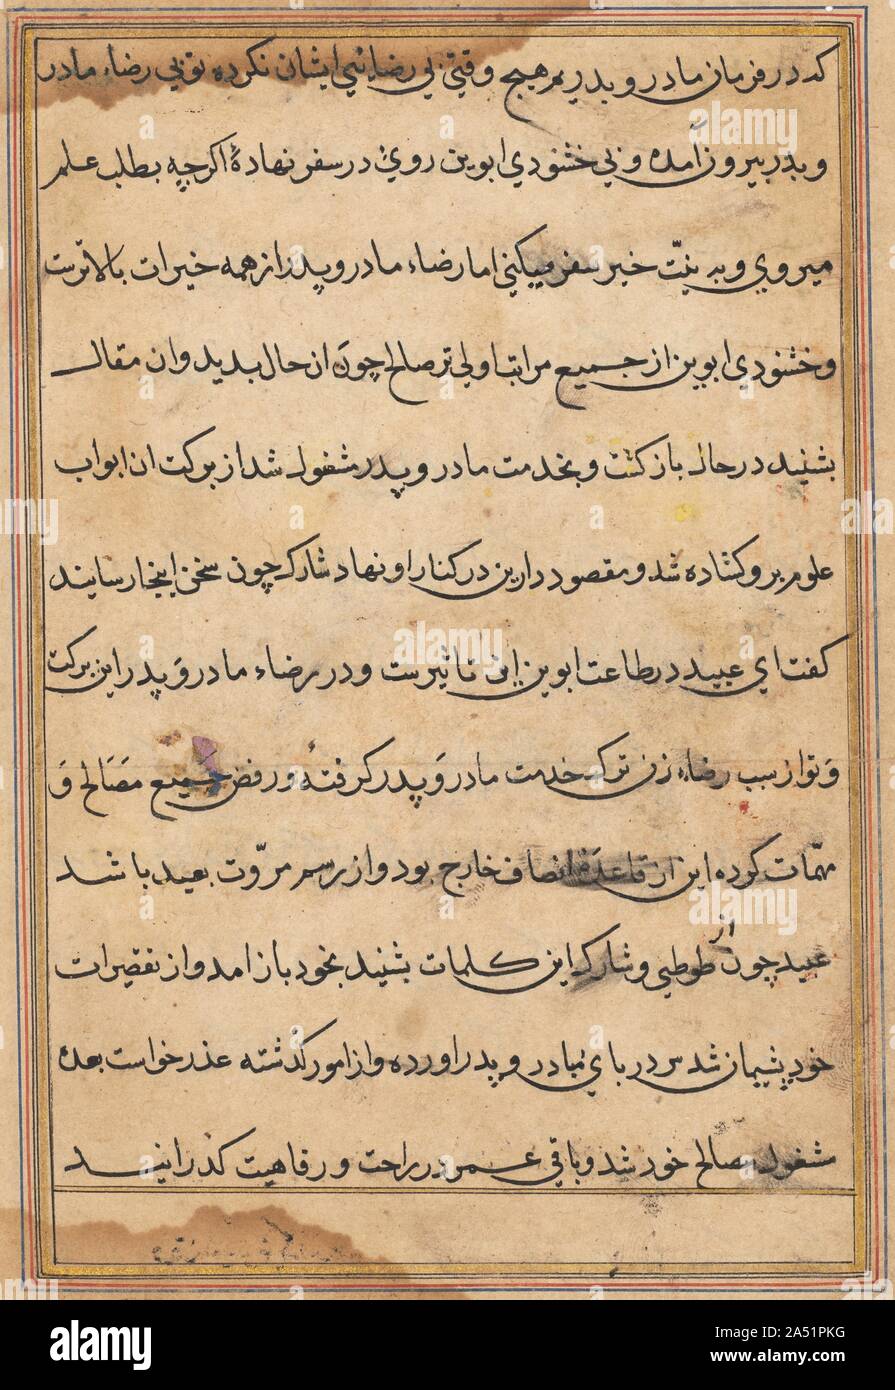 که در فرمان مادر و پدر بر هیچ وقتی بی رضاء ایشان نکرده تو بی رضاء مادر
و پدر بیرون آمده و بی خشنودی ابوین روی در سفر نهادهٔ اگرچه بطلب علم
میروی و به نیّت خیر سفر میکنی اما رضاء مادر و پدر از همه خیرات بالاترست
و خشنودی ابوین از جمیع مراتب اولی تر صالح چون ان حال بدید و ان مقال
بشنید در حال باز کشت و بخدمت مادر و پدر مشغول شد از برکت ان ابواب
علوم برو کشاده شد و مقصود دارین در کنار او نهاد شارک چون سخن اینجا رسانید
کفت ای عبید در طاعت ابوین این تاثیرست و در رضاء مادر وَ پدر این برکت
وَ تو از سبب رضاء زن ترک خدمت مادر وَ پدر کرفتهٔ و رفض جمیع مَصَالح وَ
مهمّات کرده این از قاعدهٔ انصاف خارج بود و از رسم مروّت بعید باشد
عبید چون از طوطی و شارک این کلمات بشنید بخود باز امد و از تقصیرات
خود پشیمان شد سر در پای مادر و پدر اورده و از امور کذشته عذر خواست بعده
مشغول مصالح خود شد و باقی عمر در راحت و رفاهیت کذرانید
alamy
Image ID: 2A51PKG
www.alamy.com